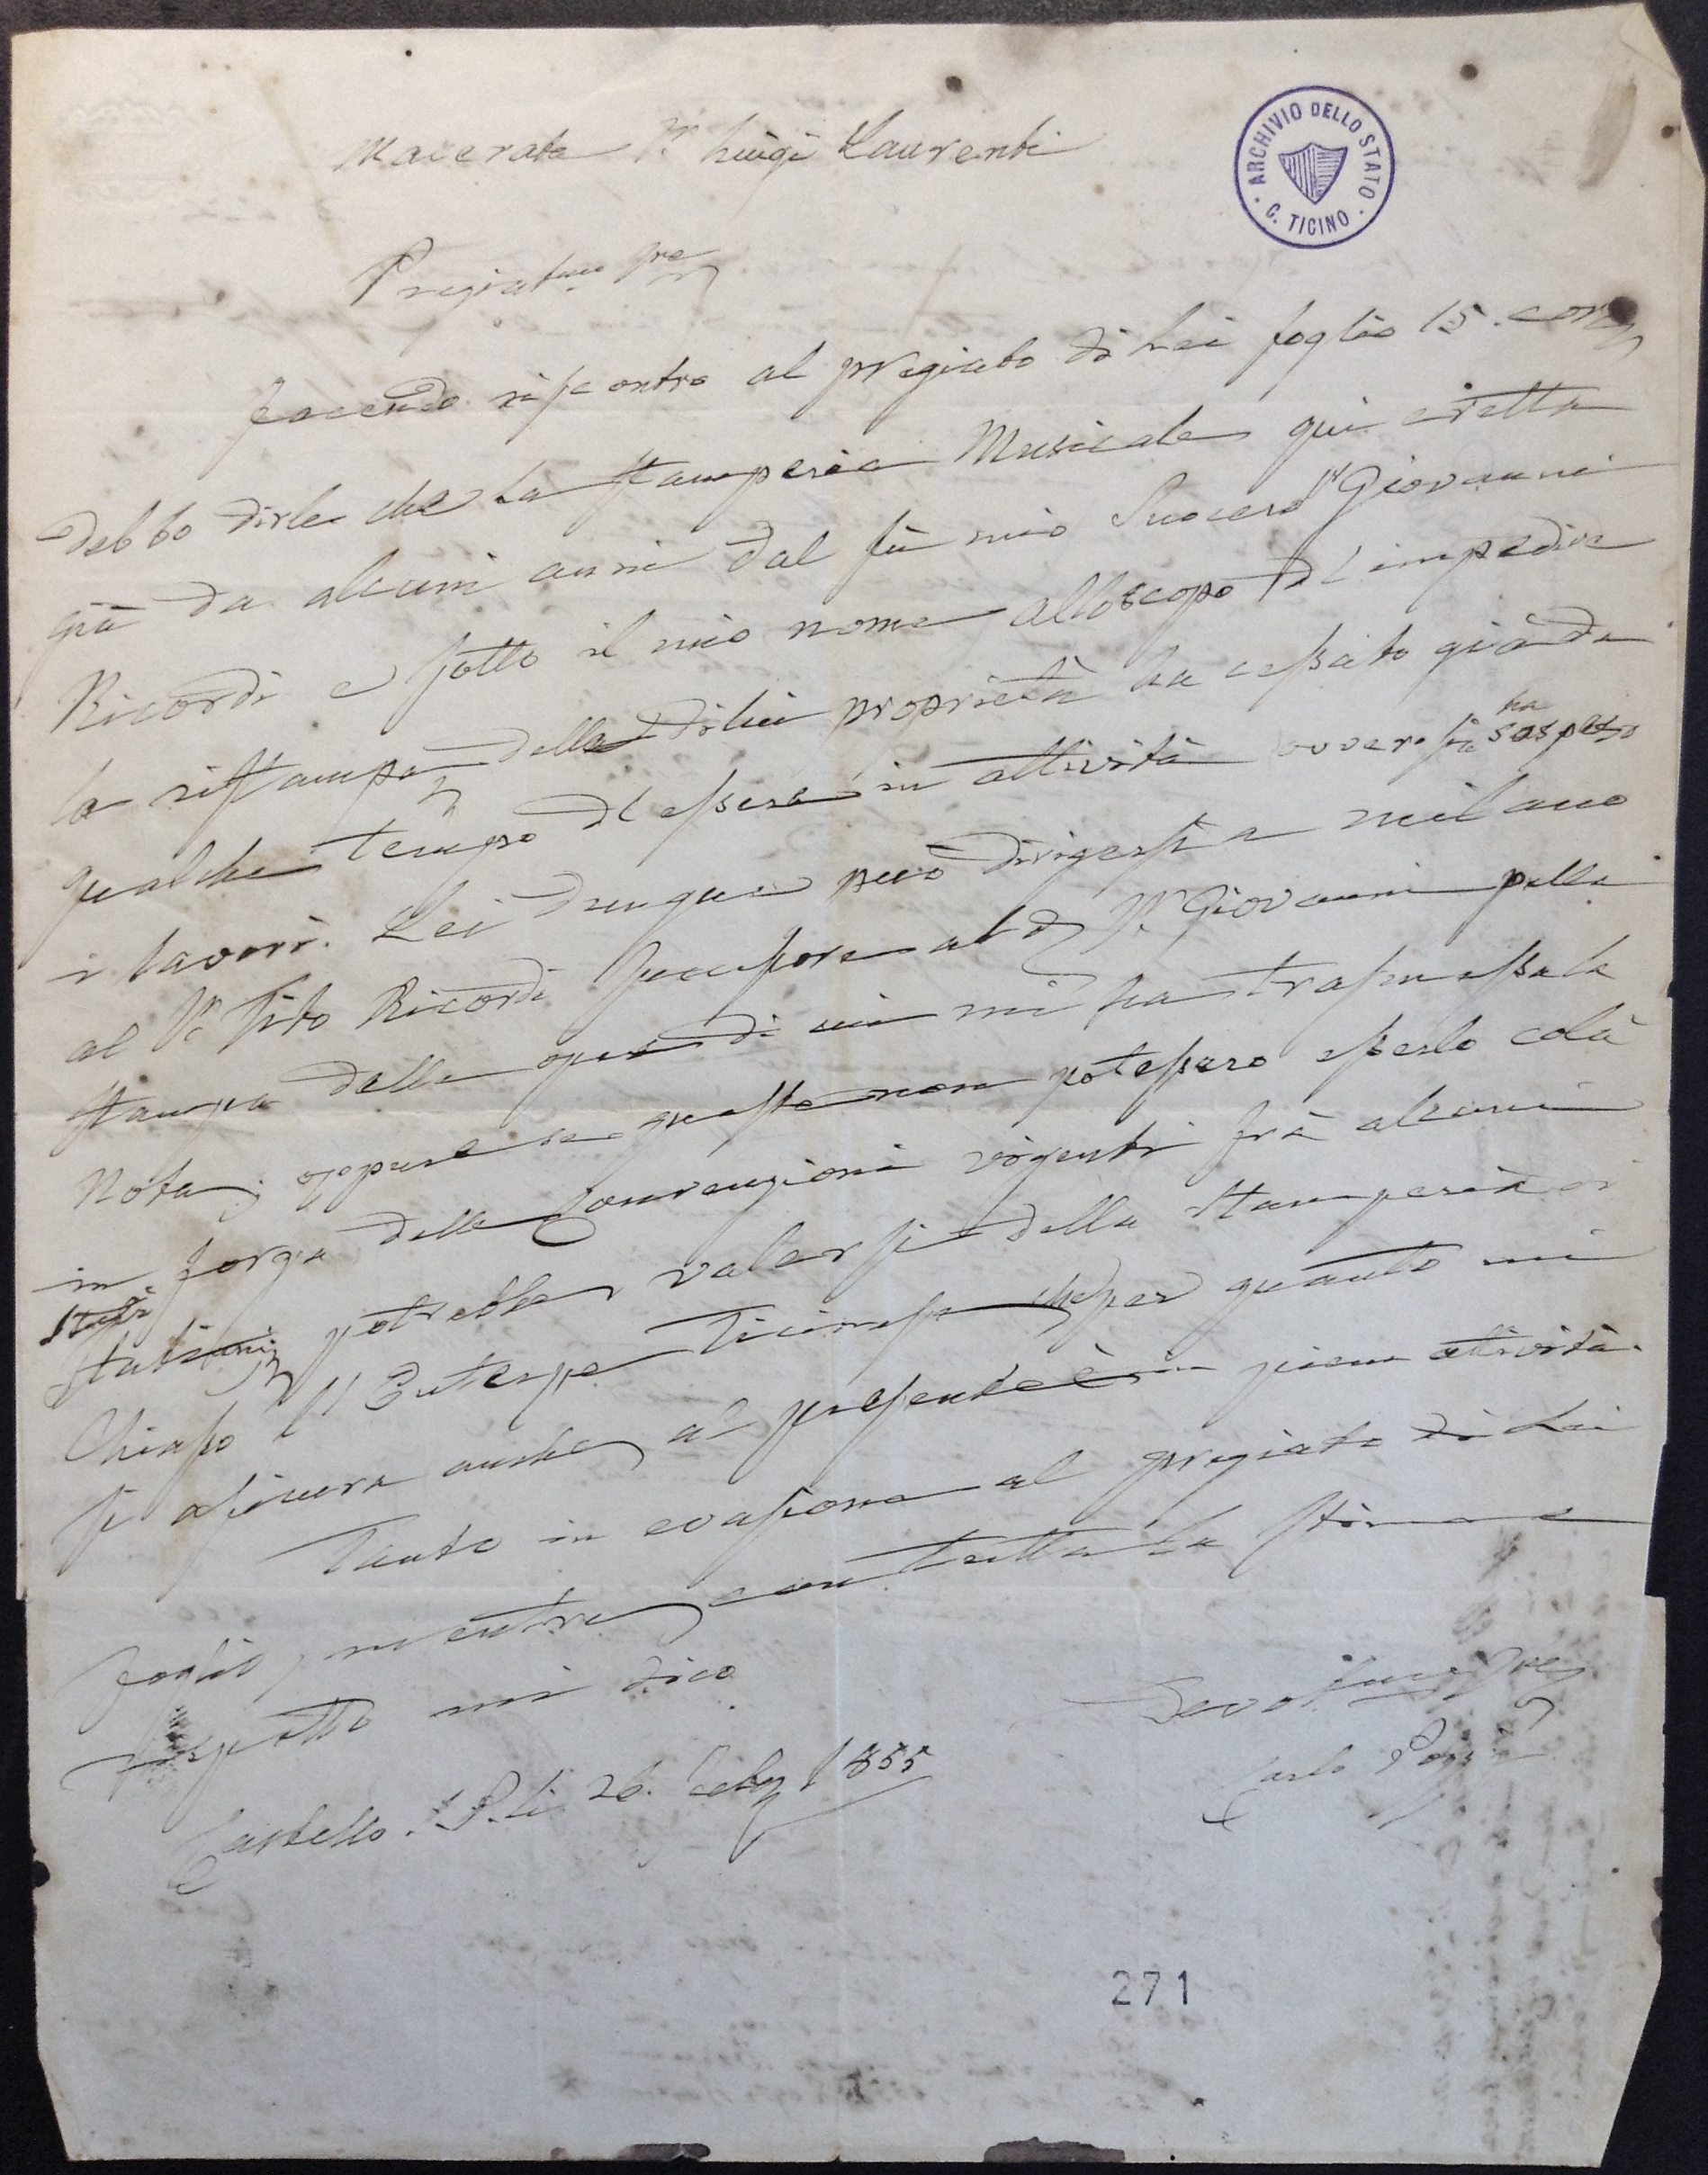 Macerata Sr. Luigi Laurenti
ARCHIVIO DELLO STATO
C. TICINO
Pregiatmo Sre
Facendo riscontro al pregiato di Lei foglio 15. corr
debbo dirle che la stamperia Musicale qui eretta
già da alcuni anni dal fù mio Suocero Sr Giovanni
Ricordi e sotto il mio nome allo scopo d'impedire
la ristampa delle di lui proprietà ha cessato già da
qualche tempo di essere in attività ovvero ha sospeso
i lavori. Lei dunque può dirigersi a Milano
al Sr Tito Ricordi Successore al dº Sr Giovanni pella
stampa delle opere di cui mi ha trasmessa la
Nota; oppure se queste non potessero esserlo colà
in forza delle Convenzioni vigenti frà alcuni
Stati potrebbe valersi della stamperia di
Chiasso l'Euterpe Ticinese che per quanto mi
si assicura anche al presente è in piena attività.
Tanto in evasione al pregiato di Lei
foglio, mentre con tutta la stima e
rispetto mi dico
Devotmo Sre
Carlo Pozzi
Castello S. P. li 26. 1855
271